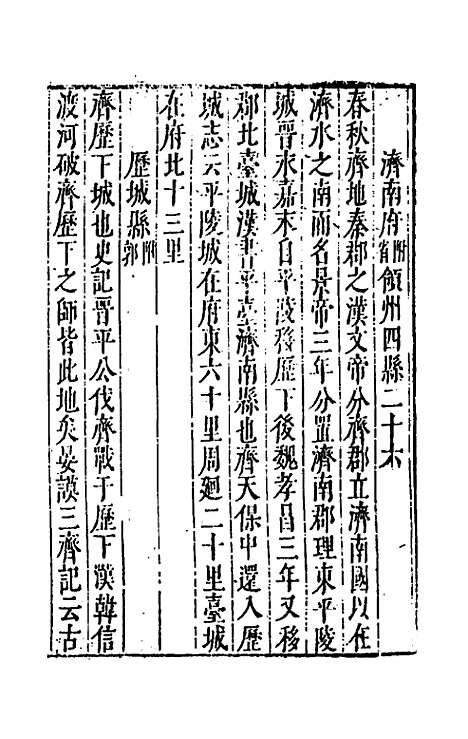 濟南府附省領州四縣二十六
春秋齊地秦郡之漢文帝分齊郡立濟南國以在
濟水之南而名景帝三年分置濟南郡理東平陵
城晉永嘉末自平陵移歷下後魏孝昌三年又移
郡北臺城漢書平臺濟南縣也齊天保中還入歷
城志云平陵城在府東六十里周廻二十里臺城
在府北十三里
歷城縣附郭
齊歷下城也史記晉平公伐齊戰于歷下漢韓信
渡河破齊歷下之師皆此地矣晏謨三齊記云古